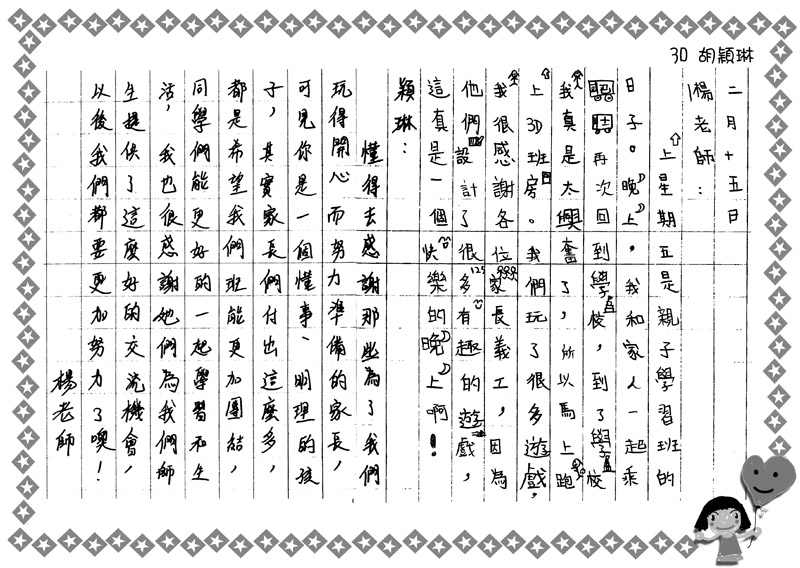 3D 胡穎琳
二月十五日
楊老師：
上星期五是親子學習班的
日子。晚上，我和家人一起乘
再次回到學校，到了學校
我真是太興奮了，所以馬上跑
上3D班房。我們玩了很多遊戲，
我很感謝各位家長義工，因為
他們設計了很多有趣的遊戲，
這真是一個快樂的晚上啊！
穎琳：
懂得去感謝那些為了我們
玩得開心而努力準備的家長，
可見你是一個懂事、明理的孩
子，其實家長們付出這麼多，
都是希望我們班能更加團結，
同學們能更好的一起學習和生
活，我也很感謝她們為我們師
生提供了這麼好的交流機會，
以後我們都要更加努力了噢！
楊老師